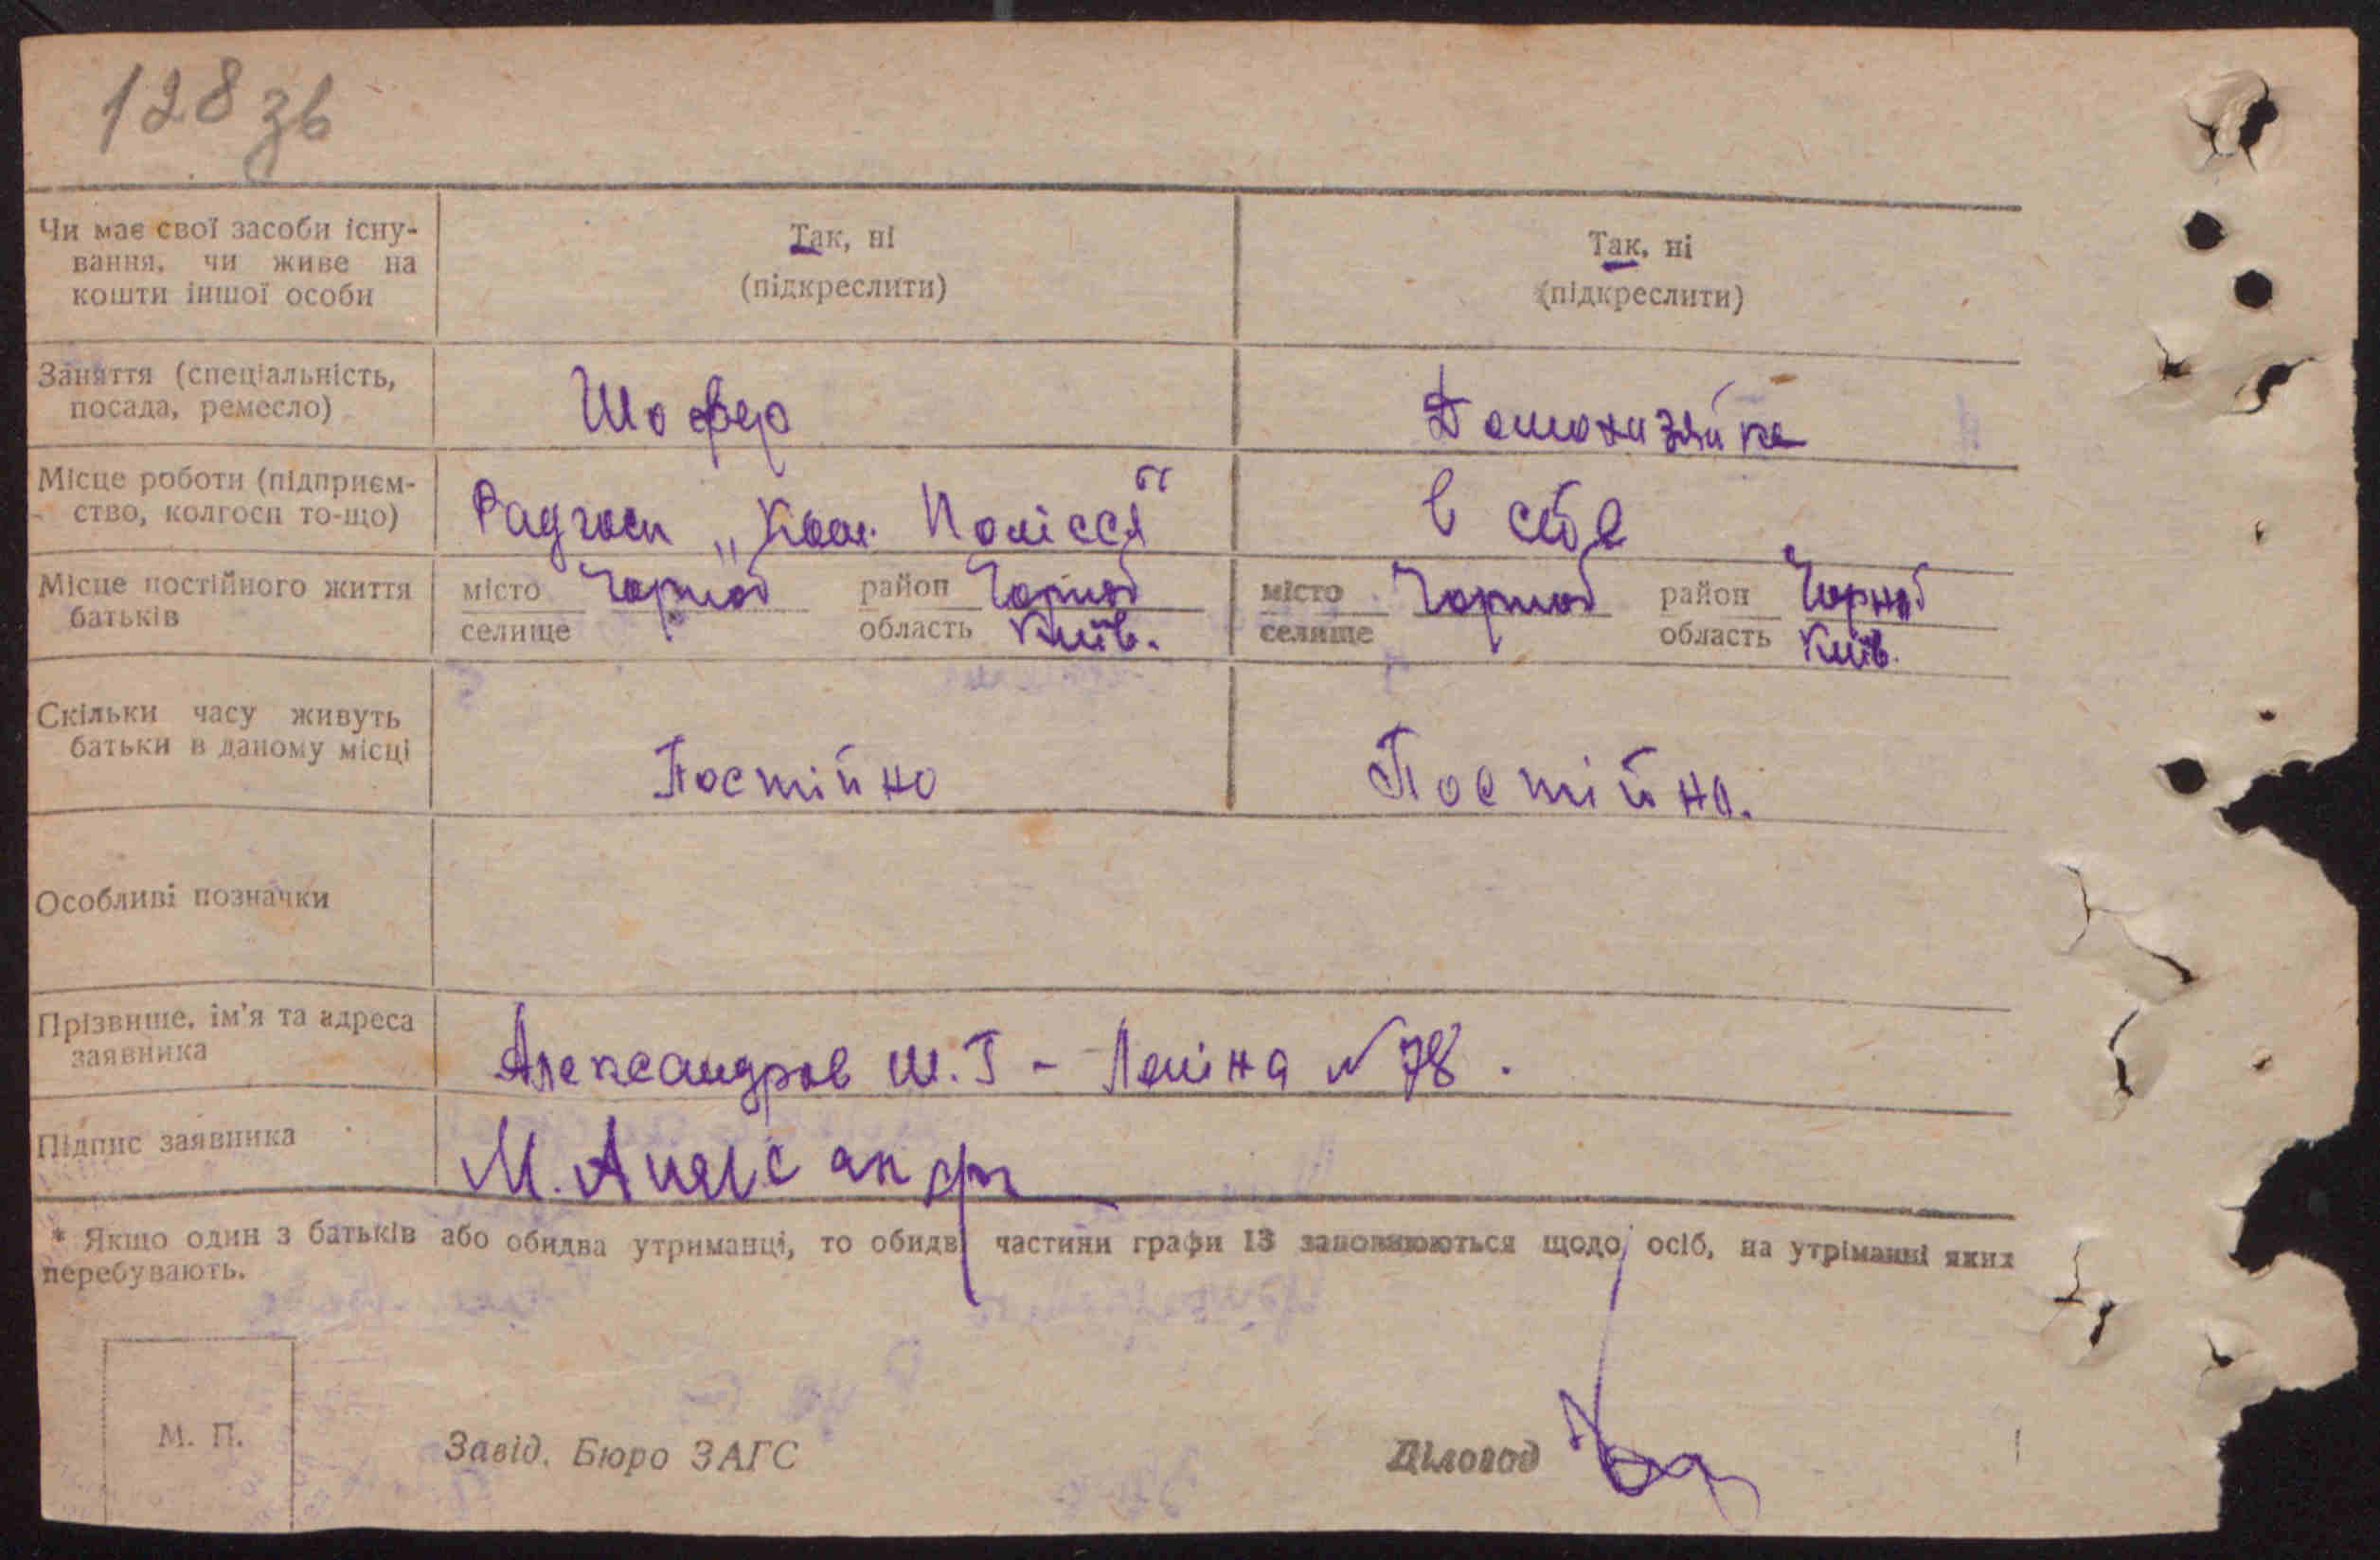 128 зв
Чи має свої засоби існу-
вання, чи живе на
кошти іншої особи
Так, ні
(підкреслити)
Так, ні
(підкреслити)
Заняття (спеціальність,
посада, ремесло)
Шофер
Домохазяйка
Місце роботи (підприєм-
ство, колгосп то-що)
Радгосп „ Полісся"
в себе
Місце постійного життя
батьків
місто Чорноб район Чорноб
селище область Київ.
місто Чорноб район Чорноб
селище область Київ.
Скільки часу живуть
батьки в даному місці
Постійно
Постійно.
Особливі позначки
Прізвище, ім'я та адреса
заявника
Александров Ш. Г - Леніна № 78.
Підпис заявника
М. Александр
* Якщо один з батьків або обидва утриманці, то обидві частини графи 13 заповнюються щодо осіб, на утріманні яких
перебувають.
М. П.
Завід. Бюро ЗАГС
Діловод